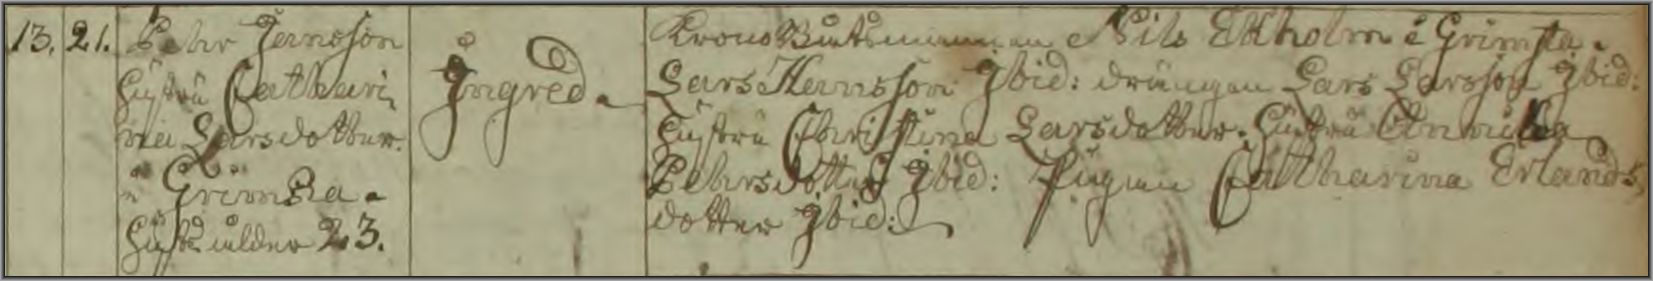 13. 21. Pehr Jernsson
hustru Cathari
na Larsdotter.
i Grimsta.
hust: ålder 23.
Ingred.
Krono Båtsmannen Nils Ekholm i Grimsta.
Lars Hansson Ibid: drängen Lars Larsson Ibid:
hustru Christina Larsdotter. hustru Annicka
Pehrsdotter Ibid: Pigan Catharina Erlands
dotter Ibid: